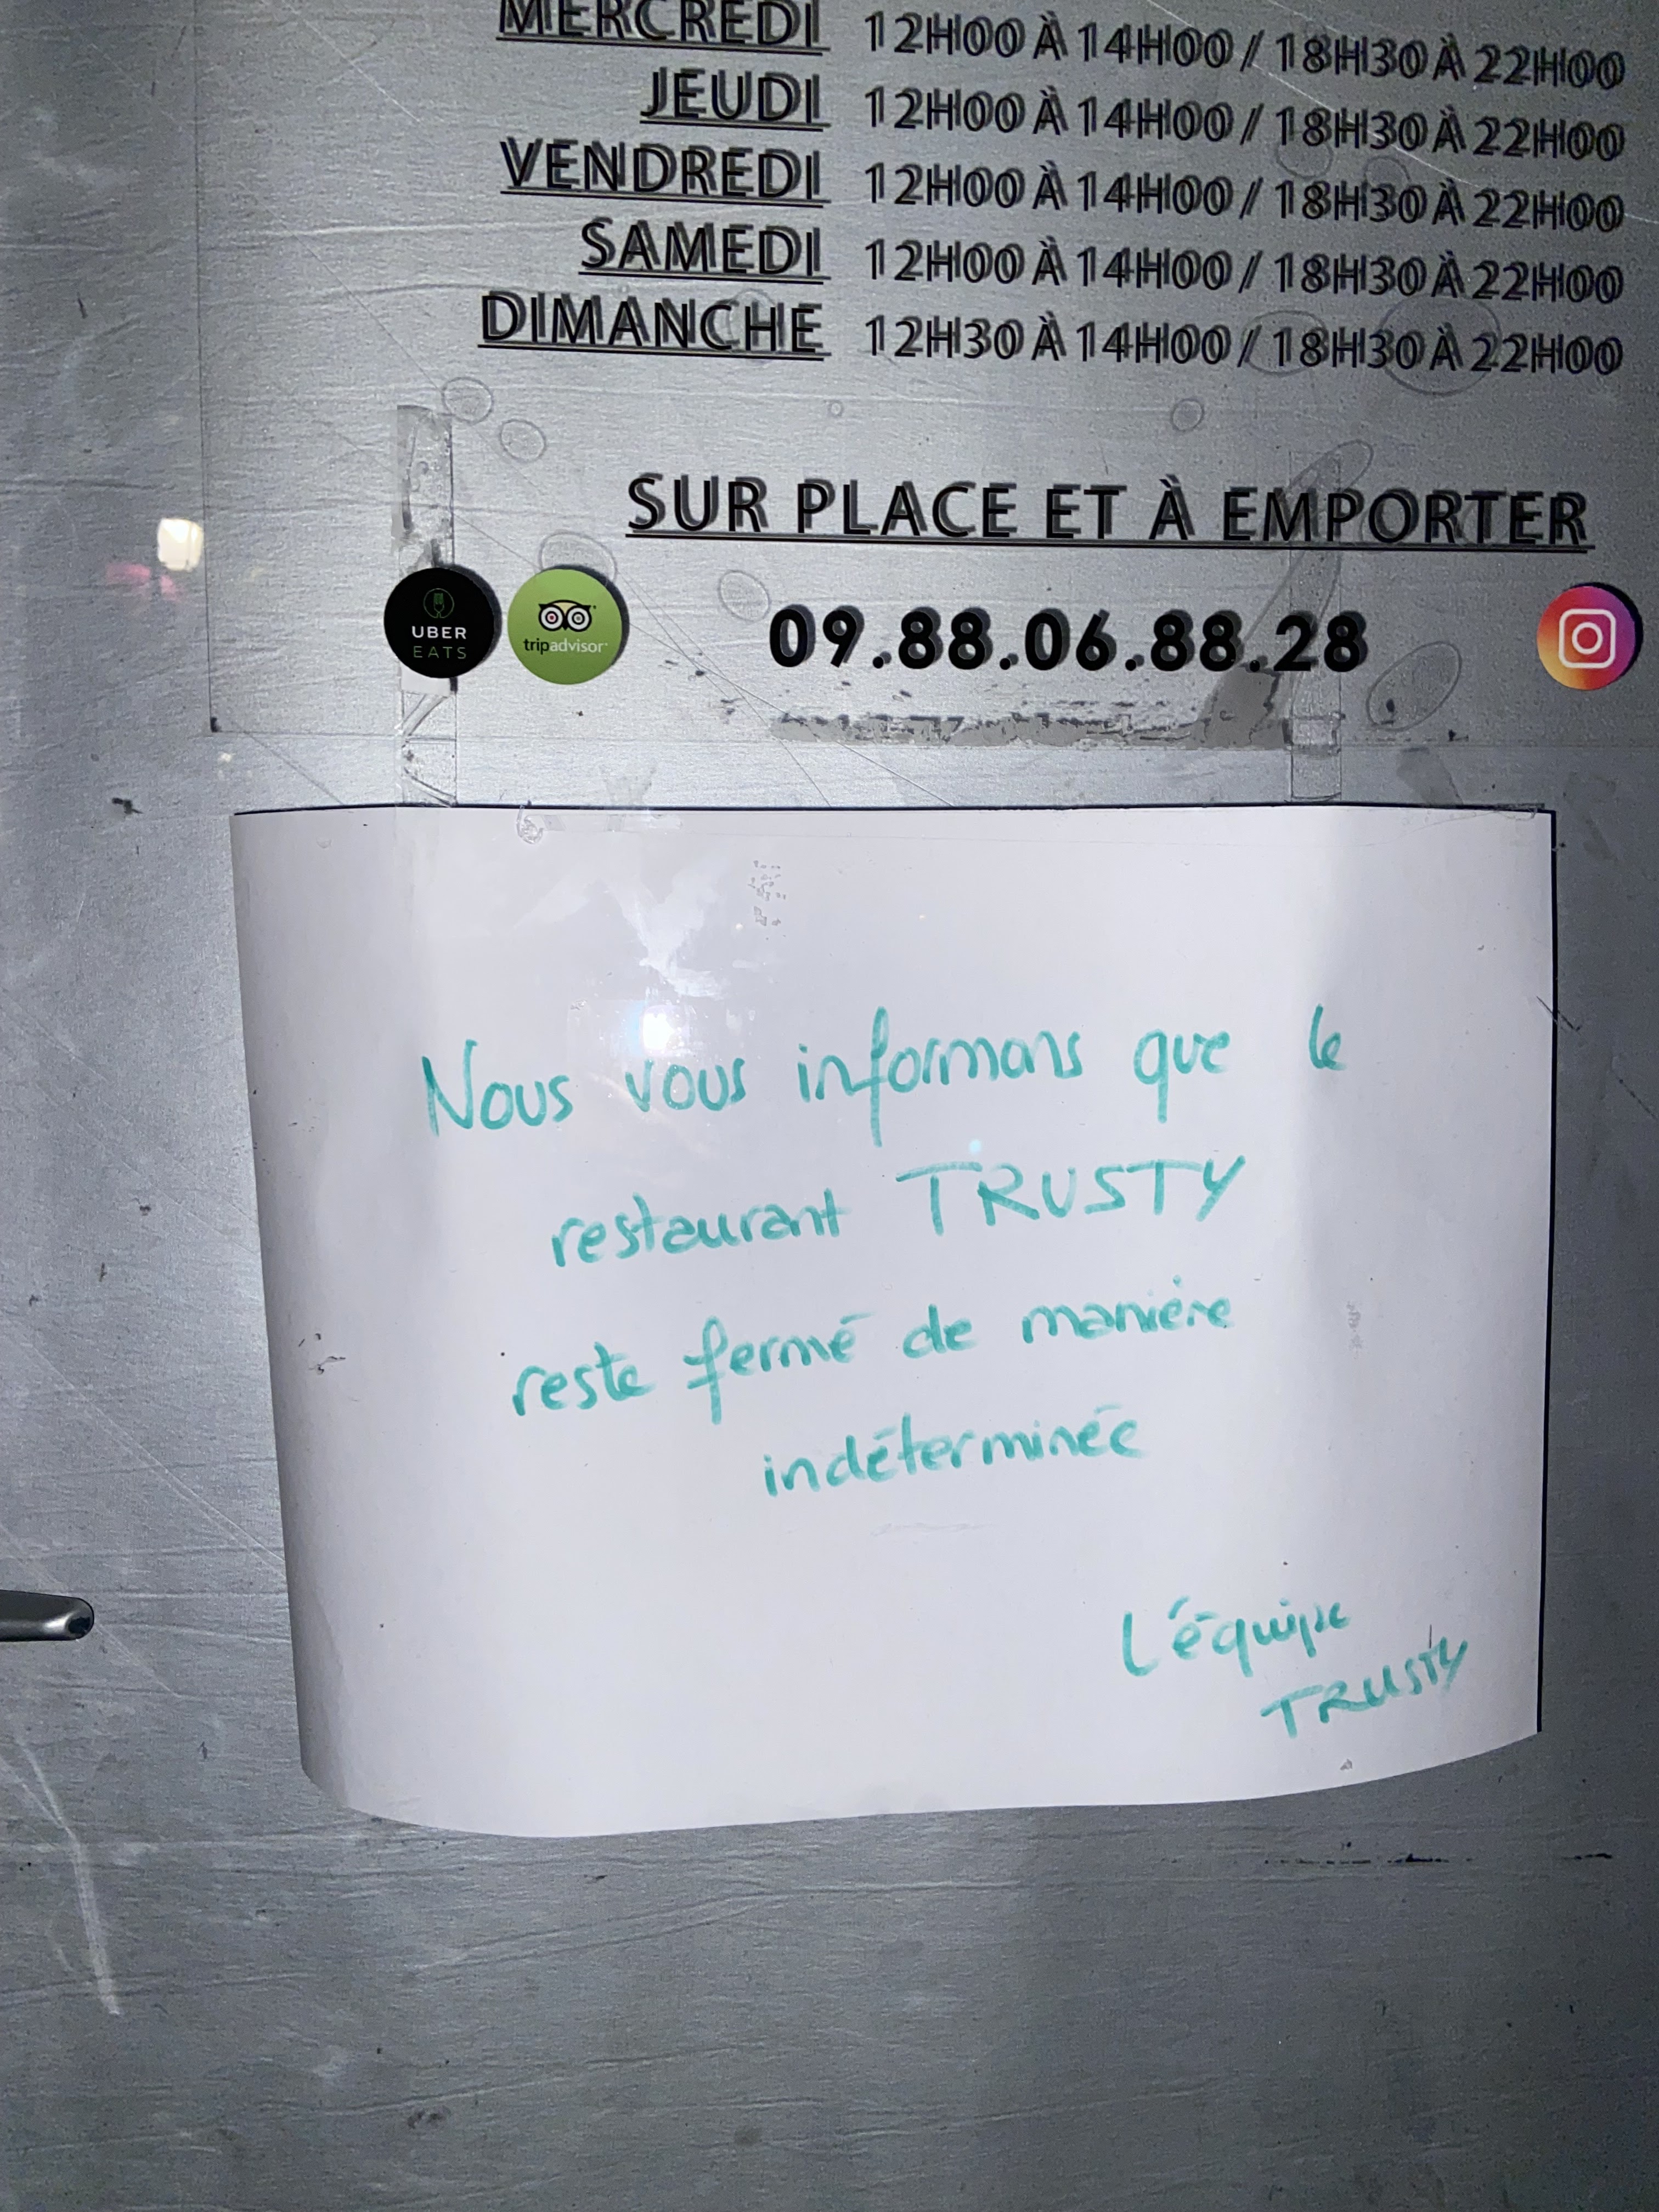 MERCREDI 12H00 À 14H00 / 18H30 À 22H00
JEUDI 12H00 À 14H00 / 18H30 À 22H00
VENDREDI 12H00 À 14H00 / 18H30 À 22H00
SAMEDI 12H00 À 14H00 / 18H30 À 22H00
DIMANCHE 12H30 À 14H00 / 18H30 À 22H00
SUR PLACE ET À EMPORTER
UBER
EATS
tripadvisor
09.88.06.88.28
Nous vous informons que le
restaurant TRUSTY
reste fermé de manière
indéterminée
L'équipe
TRUSTY